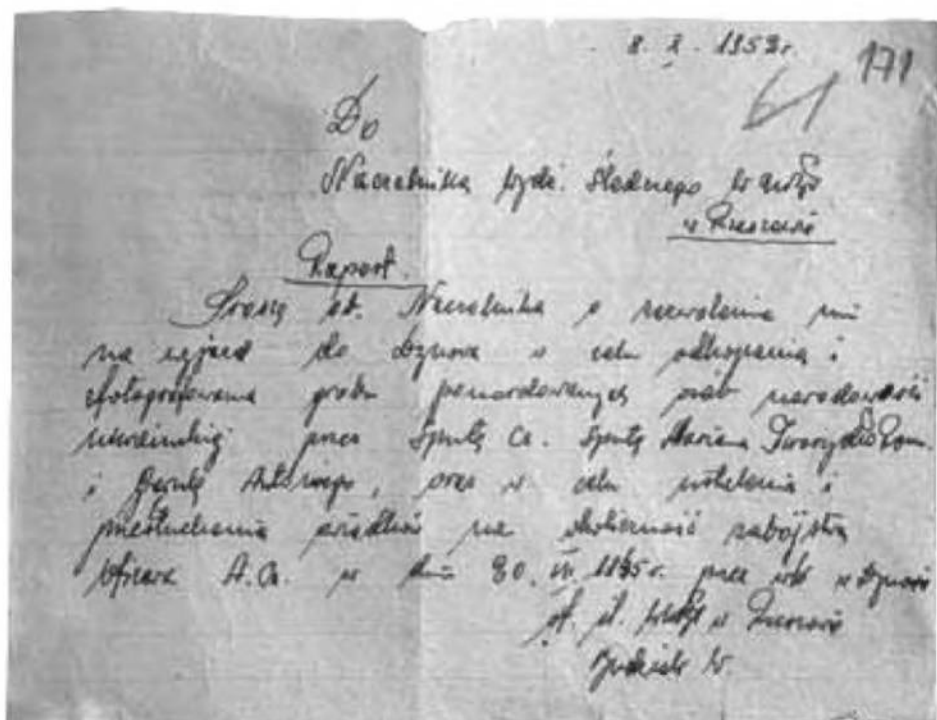 8. X. 1952r.
171
61
Do
Naczelnika Wydz. Śledczego WUBP
w Rzeszowie
Raport.
Proszę ob. Naczelnika o zezwolenie mi
na wyjazd do Dynowa w celu odkopania i
sfotografowania grobu pomordowanych osób narodowości
ukraińskiej przez Cz. Mariana
i Antoniego, oraz w celu ustalenia i
przesłuchania świadków na okoliczność zabójstwa
oficera A.Cz. w dniu 30. 1945r. przez w Dynowie
of. śl. WUBP w Rzeszowie
W.